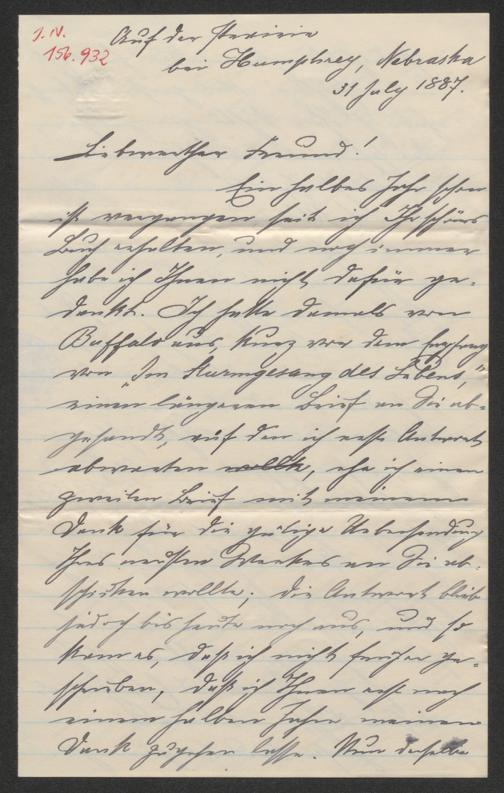 J. N.
156.932
Auf der Prairie
bei Humphrey, Nebraska
31 July 1887.
Liebwerther Freund!
Ein halbes Jahr schon
ist vergangen seit ich Ihr schönes
Buch erhalten, und noch immer
habe ich Ihnen nicht dafür ge-
dankt. Ich hatte damals von
Buffalo aus, kurz vor dem Empfang
von „Im Sturmgesang des Lebens,"
einen längeren Brief an Sie ab-
gesandt, auf den ich erst Antwort
abwarten wollte, ehe ich einen
zweiten Brief mit meinem
Dank für die gütige Uebersendung
Ihres neusten Werkes an Sie ab-
schicken wollte; die Antwort blieb
jedoch bis heute noch aus, und so
kam es, daß ich nicht früher ge-
schrieben, daß ich Ihnen erst nach
einem halben Jahre meinen
Dank zugehen lasse. Nun derselbe